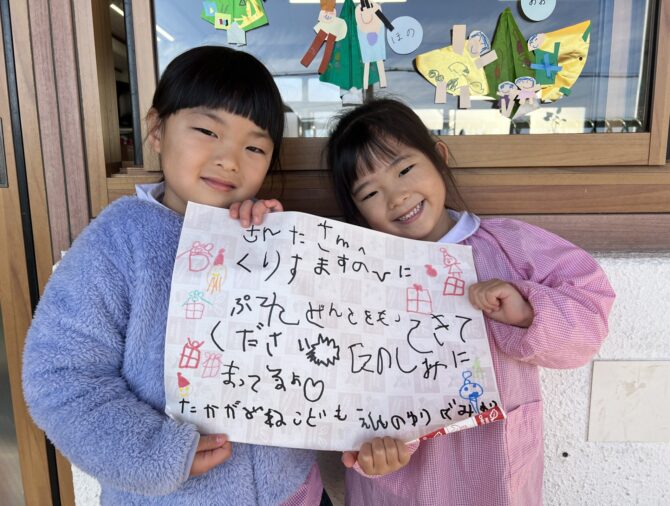 ほの
さんたさんへ
くりすますのひに
ぷれぜんとをもってきて
ください たのしみに
まってるね♡
たかがみねこどもえんのゆりぐみより